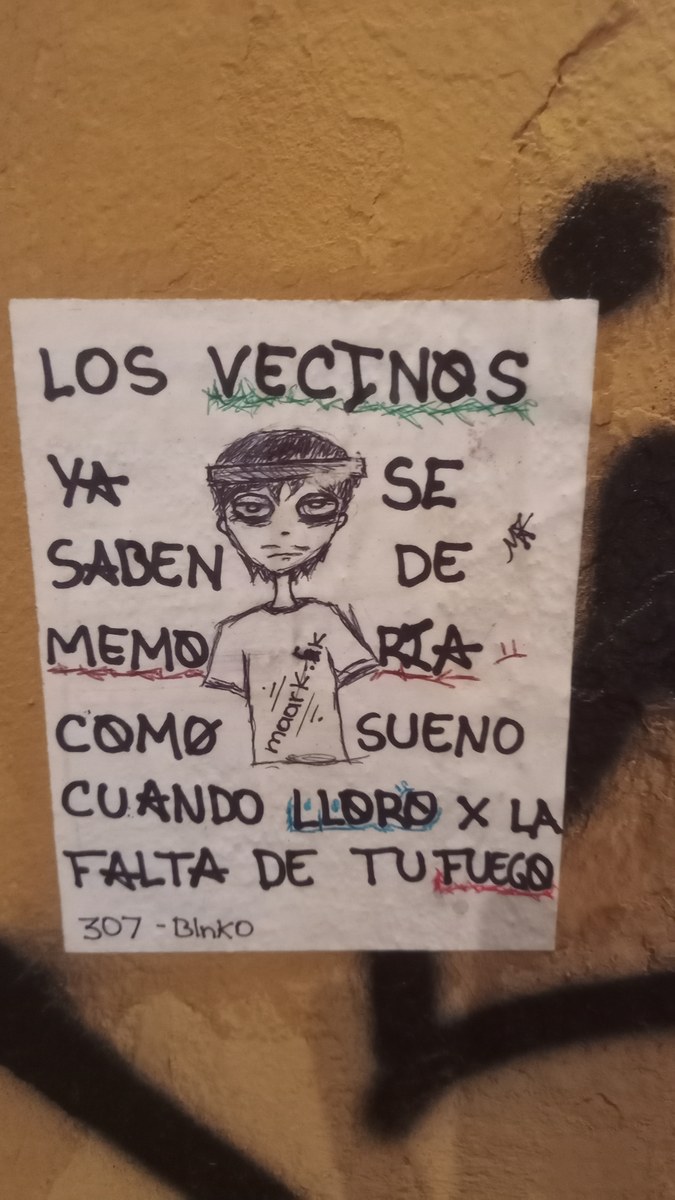 LOS VECINOS
YA SE
SABEN DE
MEMORIA
COMO SUENO
CUANDO LLORO X LA
FALTA DE TU FUEGO
307 - BlnKO
maark-.ik